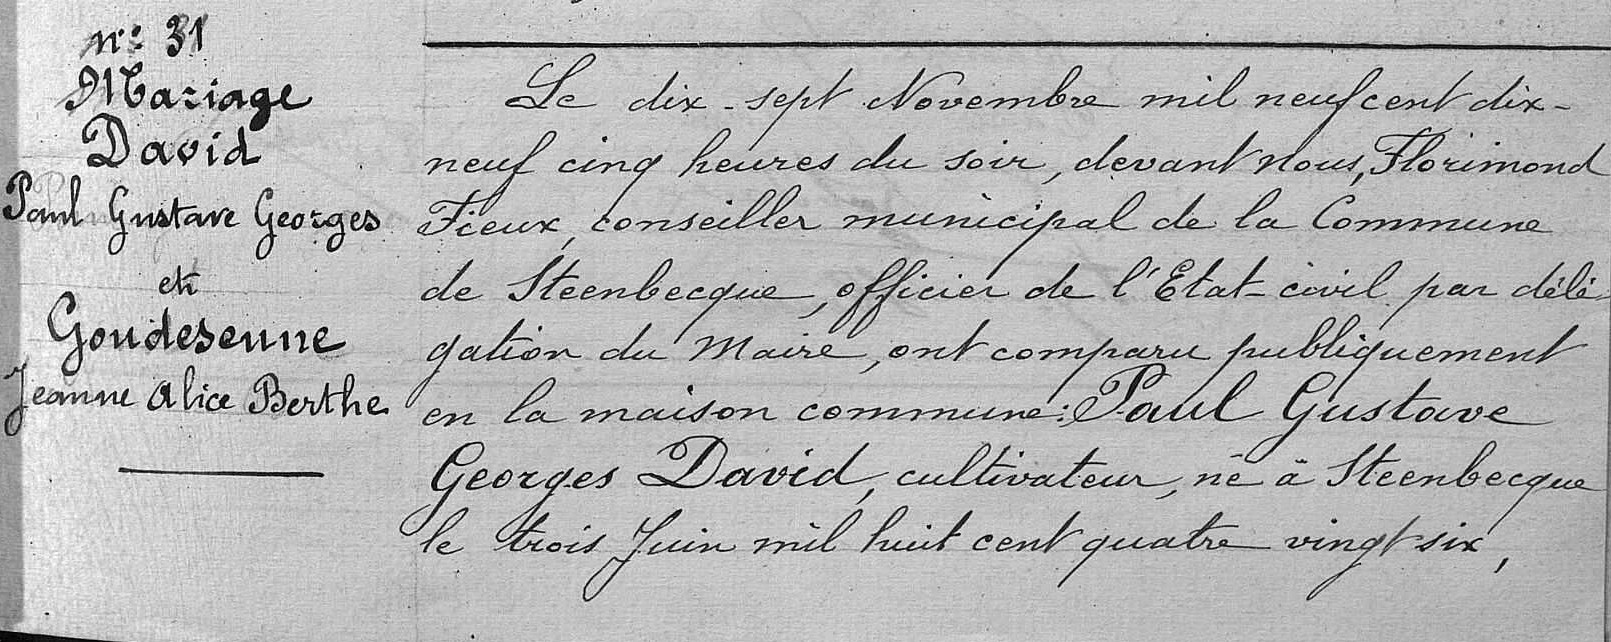 n° 31
Mariage
David
Paul Gustave Georges
et
Goudeseune
Jeanne Alice Berthe
Le dix-sept Novembre mil neuf cent dix-
neuf cinq heures du soir, devant nous, Florimond
Fieux, conseiller municipal de la Commune
de Steenbecque, officier de l'Etat-civil par délé
gation du Maire, ont comparu publiquement
en la maison commune: Paul Gustave
Georges David, cultivateur, né à Steenbecque
le trois Juin mil huit cent quatre vingt six,